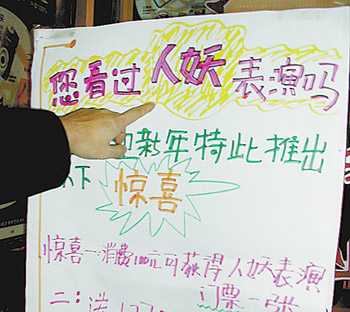 您看过人妖表演吗
迎新年特此推出
以下惊喜
惊喜一:消费100元可获得人妖表演
门票一张
二:送